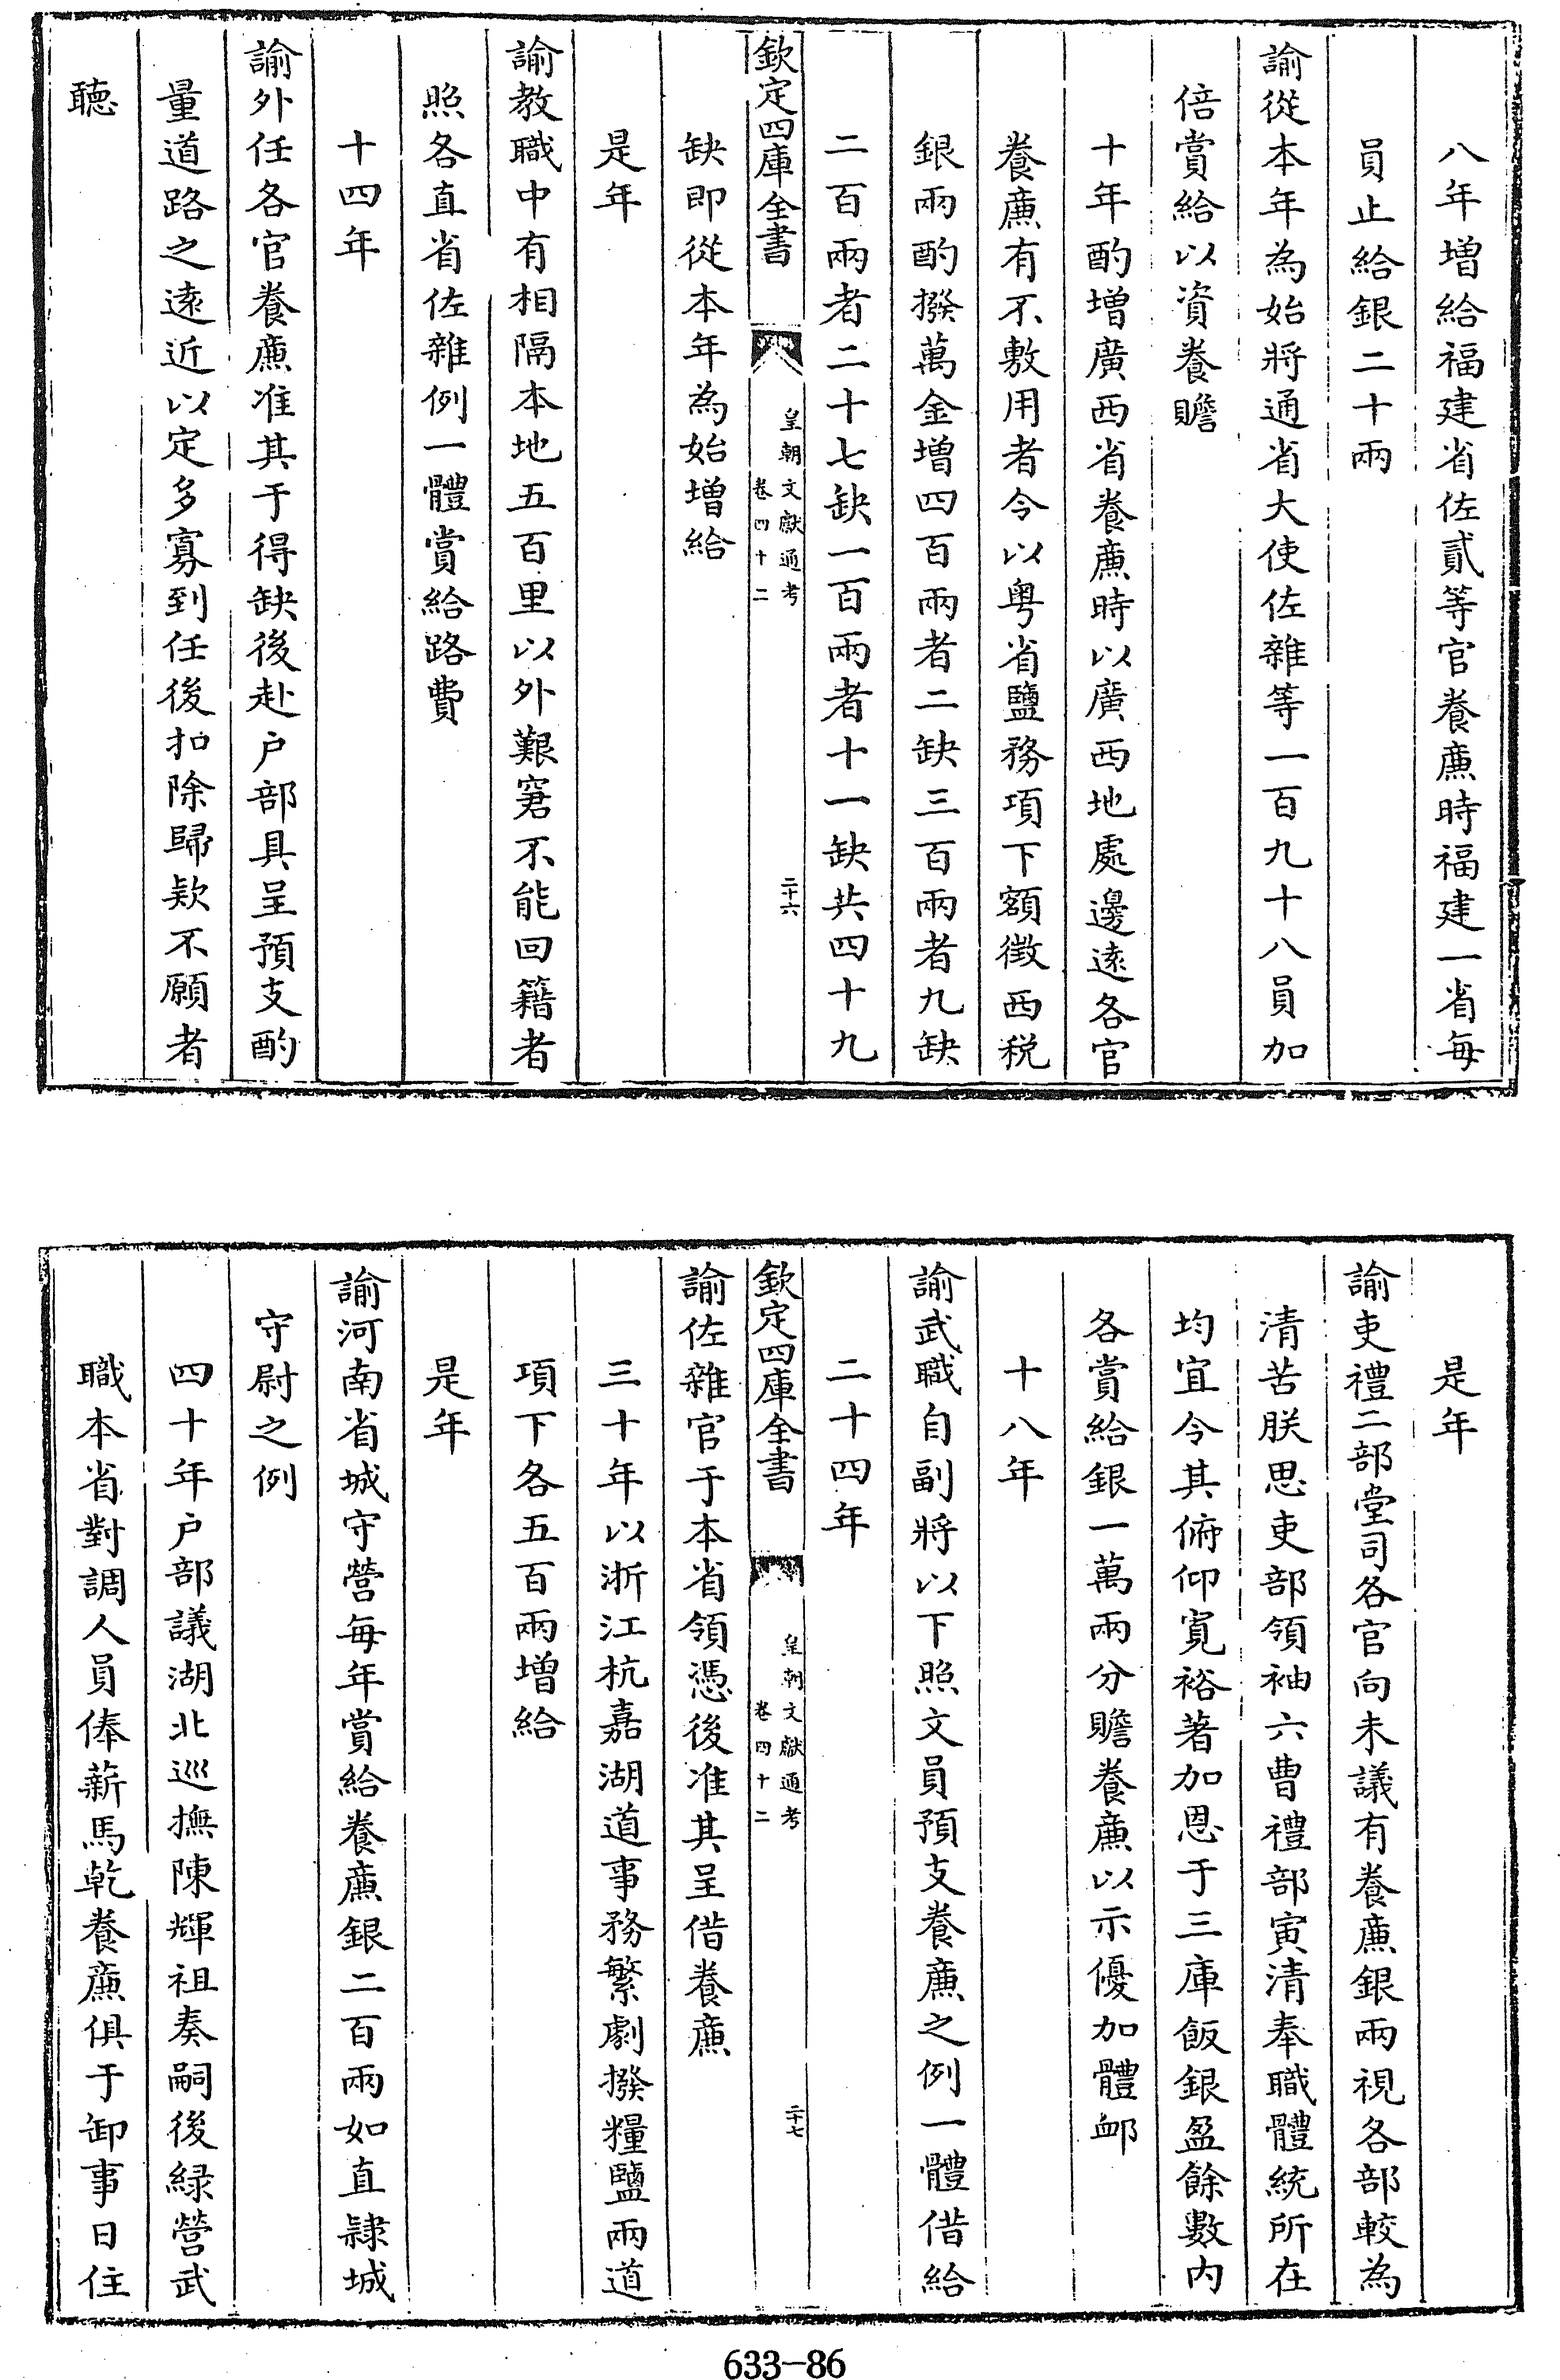 八年增給福建省佐貳等官養廉時福建一省每
員止給銀二十兩
諭從本年為始將通省大使佐雜等一百九十八員加
倍賞給以資養贍
十年酌增廣西省養廉時以廣西地處邊遠各官
養廉有不敷用者令以粤省鹽務項下額徵西税
銀兩酌撥萬金增四百兩者二缺三百兩者九缺
二百兩者二十七缺一百兩者十一缺共四十九
欽定四庫全書
皇朝文獻通考
卷四十二
二十六
缺即從本年為始增給
是年
諭教職中有相隔本地五百里以外艱窘不能回籍者
照各直省佐雜例一體賞給路費
十四年
諭外任各官養廉准其于得缺後赴户部具呈預支酌
量道路之遠近以定多寡到任後扣除歸款不願者
聽
是年
諭吏禮二部堂司各官向未議有養廉銀兩視各部較為
清苦朕思吏部領袖六曹禮部寅清奉職體統所在
均宜令其俯仰寛裕著加恩于三庫飯銀盈餘數内
各賞給銀一萬兩分贍養廉以示優加體卹
十八年
諭武職自副將以下照文員預支養廉之例一體借給
二十四年
欽定四庫全書
皇朝文獻通考
卷四十二
二十七
諭佐雜官于本省領憑後准其呈借養廉
三十年以浙江杭嘉湖道事務繁劇撥糧鹽兩道
項下各五百兩增給
是年
諭河南省城守營每年賞給養廉銀二百兩如直隸城
守尉之例
四十年户部議湖北巡撫陳輝祖奏嗣後緑營武
職本省對調人員俸薪馬乾養廉俱于卸事日住
633-86